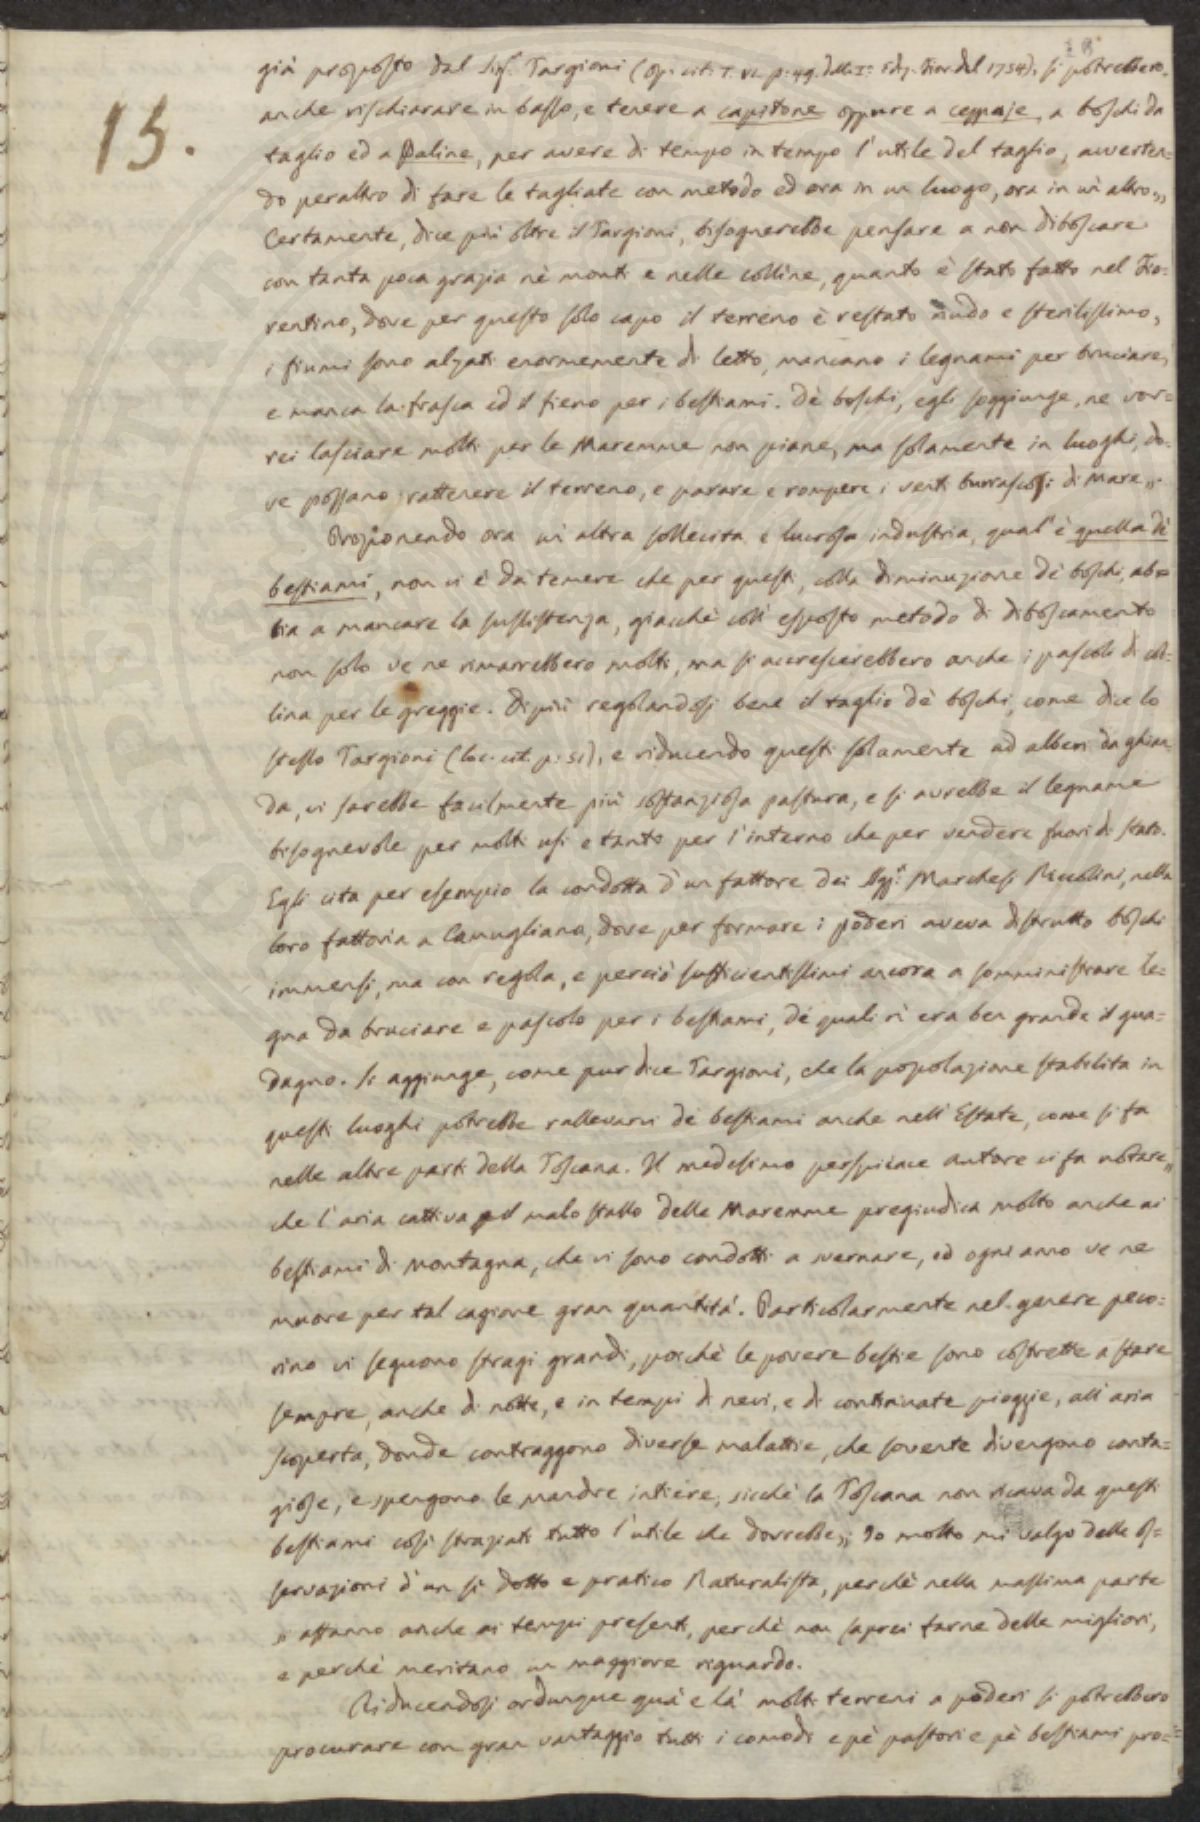 18
15.
già proposto dal Sig. Targioni (op. cit. T. VI. p. 49. della I.ª ediz. Fior. del 1754), si potrebbero
anche rischiarare in basso, e tenere a capitone oppure a ceppaje, a boschi da
taglio ed a Paline, per avere di tempo in tempo l'utile del taglio, avverten=
do peraltro di fare le tagliate con metodo ed ora in un luogo, ora in un altro„
Certamente, dice più oltre il Targioni, bisognerebbe pensare a non diboscare
con tanta poca grazia nè monti e nelle colline, quanto è stato fatto nel Fio=
rentino, dove per questo solo capo il terreno è restato nudo e sterilissimo,
i fiumi sono alzati enormemente di letto, mancano i legnami per bruciare,
e manca la frasca ed il fieno per i bestiami. Dè boschi, egli soggiunge, ne vor=
rei lasciare molti per le Maremme non piane, ma solamente in luoghi, do=
ve possano rattenere il terreno, e parare e rompere i venti burrascosi di Mare„.
Proponendo ora un altra sollecita e lucrosa industria, qual'è quella dè
bestiami, non vi è da temere che per questi, colla diminuzione dè boschi, ab=
bia a mancare la sussistenza, giacchè coll'esposto metodo di diboscamento
non solo ve ne rimarrebbero molti, ma si accrescerebbero anche i pascoli di col=
lina per le greggie. Di più regolandosi bene il taglio dè boschi, come dice lo
stesso Targioni (loc. cit. p. 51), e riducendo questi solamente ad alberi da ghian=
da, vi sarebbe facilmente più sostanziosa pastura, e si avrebbe il legname
bisognevole per molti usi e tanto per l'interno che per vendere fuori di stato.
Egli cita per esempio la condotta d'un fattore dei Sigg.ri Marchesi Niccolini, nella
loro fattoria a Camugliano, dove per formare i poderi aveva distrutto boschi
immensi, ma con regola, e perciò sufficientissimi ancora a somministrare le=
gna da bruciare e pascolo per i bestiami, dè quali vi era ben grande il gua=
dagno. Si aggiunge, come pur dice Targioni, che la popolazione stabilita in
questi luoghi potrebbe rallevarvi dè bestiami anche nell'Estate, come si fa
nelle altre parti della Toscana. Il medesimo perspicace autore ci fa notare„
che l'aria cattiva ed il malo stallo delle Maremme pregiudica molto anche ai
bestiami di montagna, che vi sono condotti a svernare, ed ogni anno ve ne
muore per tal cagione gran quantità. Particolarmente nel genere peco=
rino vi seguono stragi grandi, poichè le povere bestie sono costrette a stare
sempre, anche di notte, e in tempi di nevi, e di continuate pioggie, all'aria
scoperta, donde contraggono diverse malattie, che sovente divengono conta=
giose, e spengono le mandre intiere, sicchè la Toscana non ricava da questi
bestiami così straziati tutto l'utile che dovrebbe„; Io molto mi valgo delle os=
servazioni d'un sì dotto e pratico Naturalista, perchè nella massima parte
si attanno anche ai tempi presenti, perchè non saprei farne delle migliori,
e perchè meritano un maggiore riguardo.
Riducendosi ordunque quà e là molti terreni a poderi si potrebbero
procurare con gran vantaggio tutti i comodi e pè pastori e pè bestiami pro=